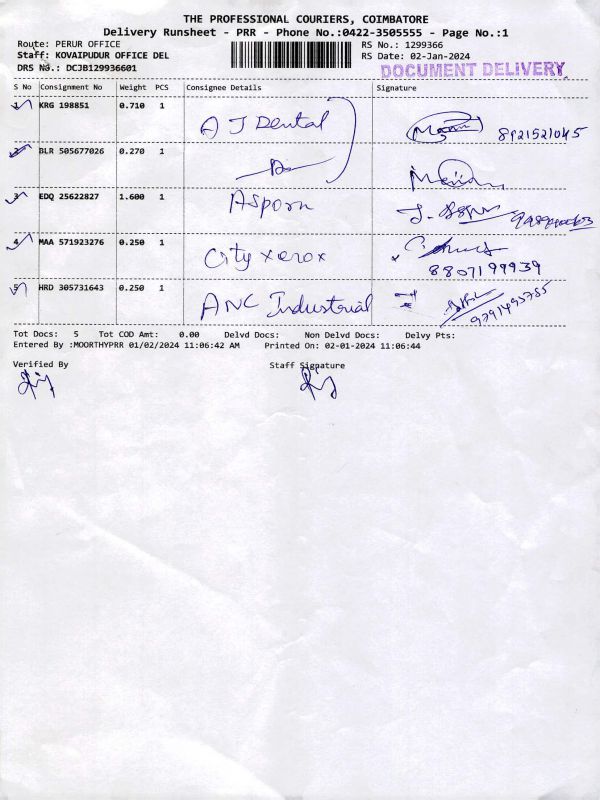 THE PROFESSIONAL COURIERS, COIMBATORE
Delivery Runsheet - PRR - Phone No.:0422-3505555 - Page No.:1
Route: PERUR OFFICE RS No.: 1299366
Staff: KOVAIPUDUR OFFICE DEL RS Date: 02-Jan-2024
DRS No.: DCJB129936601 DOCUMENT DELIVERY
S No Consignment No Weight PCS Consignee Details Signature
1 KRG 198851 0.710 1 A J Dental 8921521045
2 BLR 505677026 0.270 1
3 EDQ 25622827 1.600 1 Asporn
4 MAA 571923276 0.250 1 City xerox
8807199939
5 HRD 305731643 0.250 1 ANC Industrial
9791495785
Tot Docs: 5 Tot COD Amt: 0.00 Delvd Docs: Non Delvd Docs: Delvy Pts:
Entered By :MOORTHYPRR 01/02/2024 11:06:42 AM Printed On: 02-01-2024 11:06:44
Verified By Staff Signature